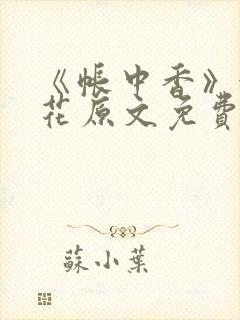 《帳中香》
花原文免費
蘇小葉